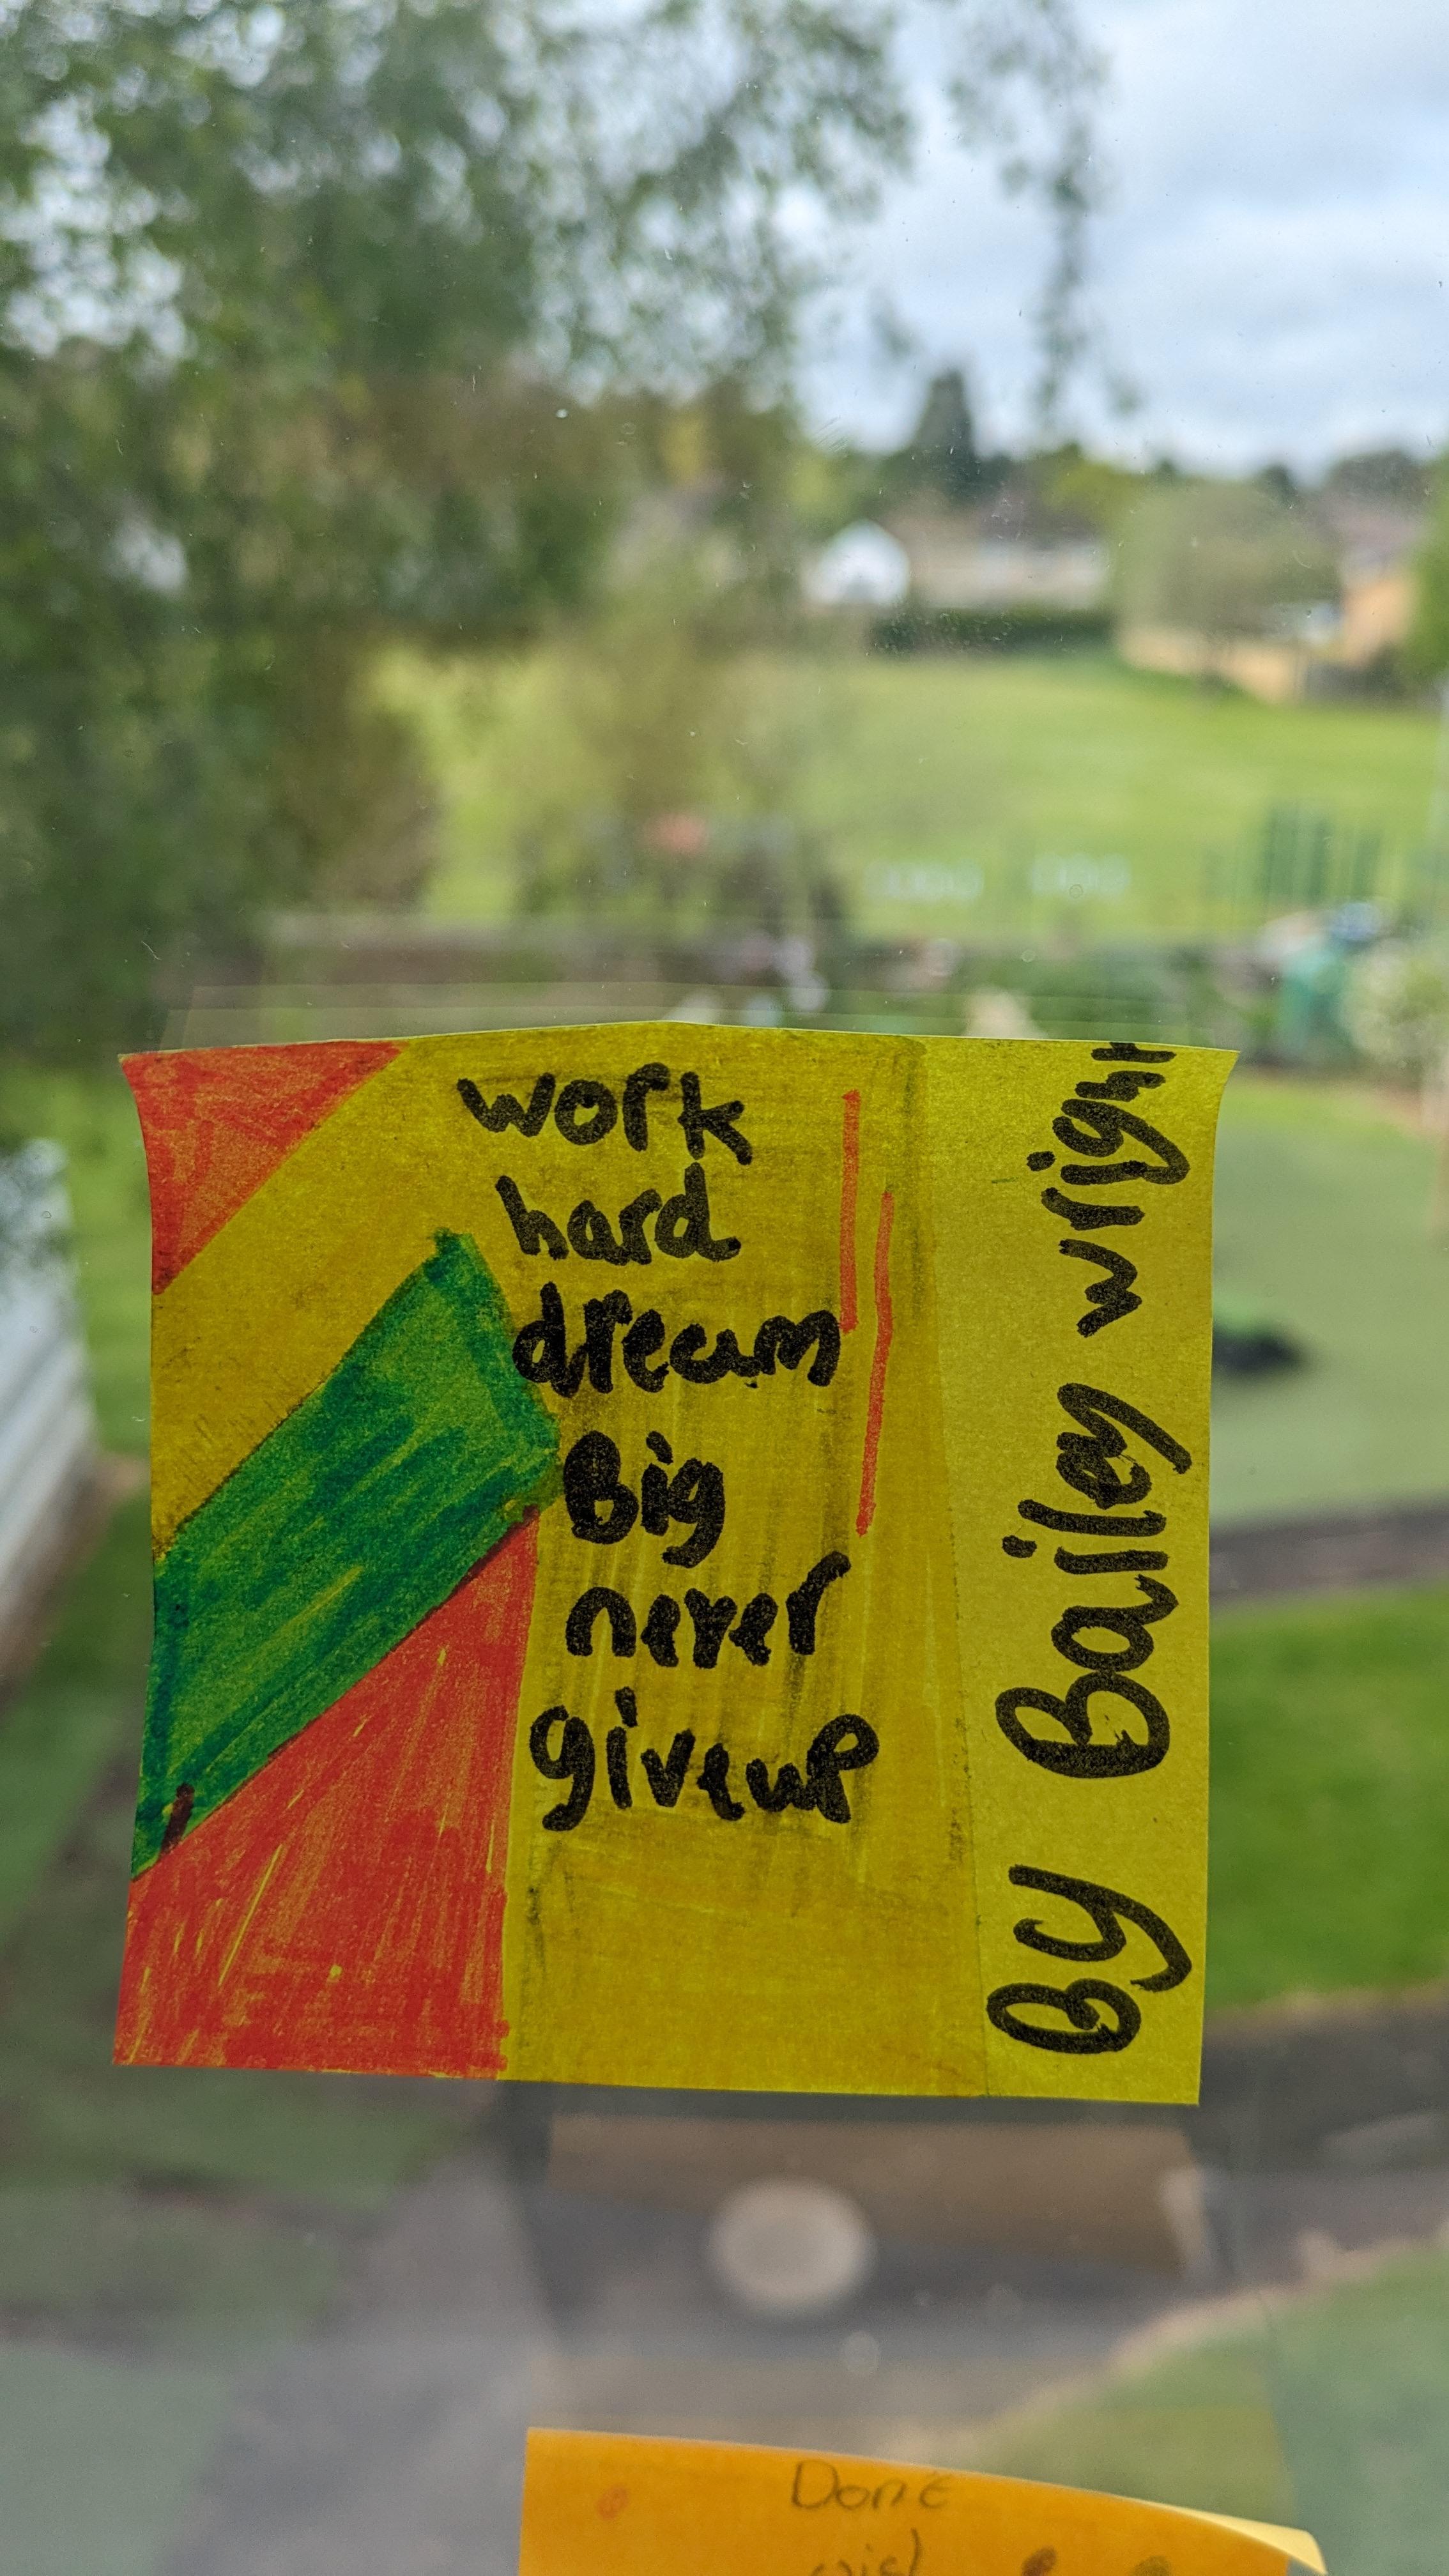 work
hard
dream
Big
never
giveup
By Bailey wright
Dont